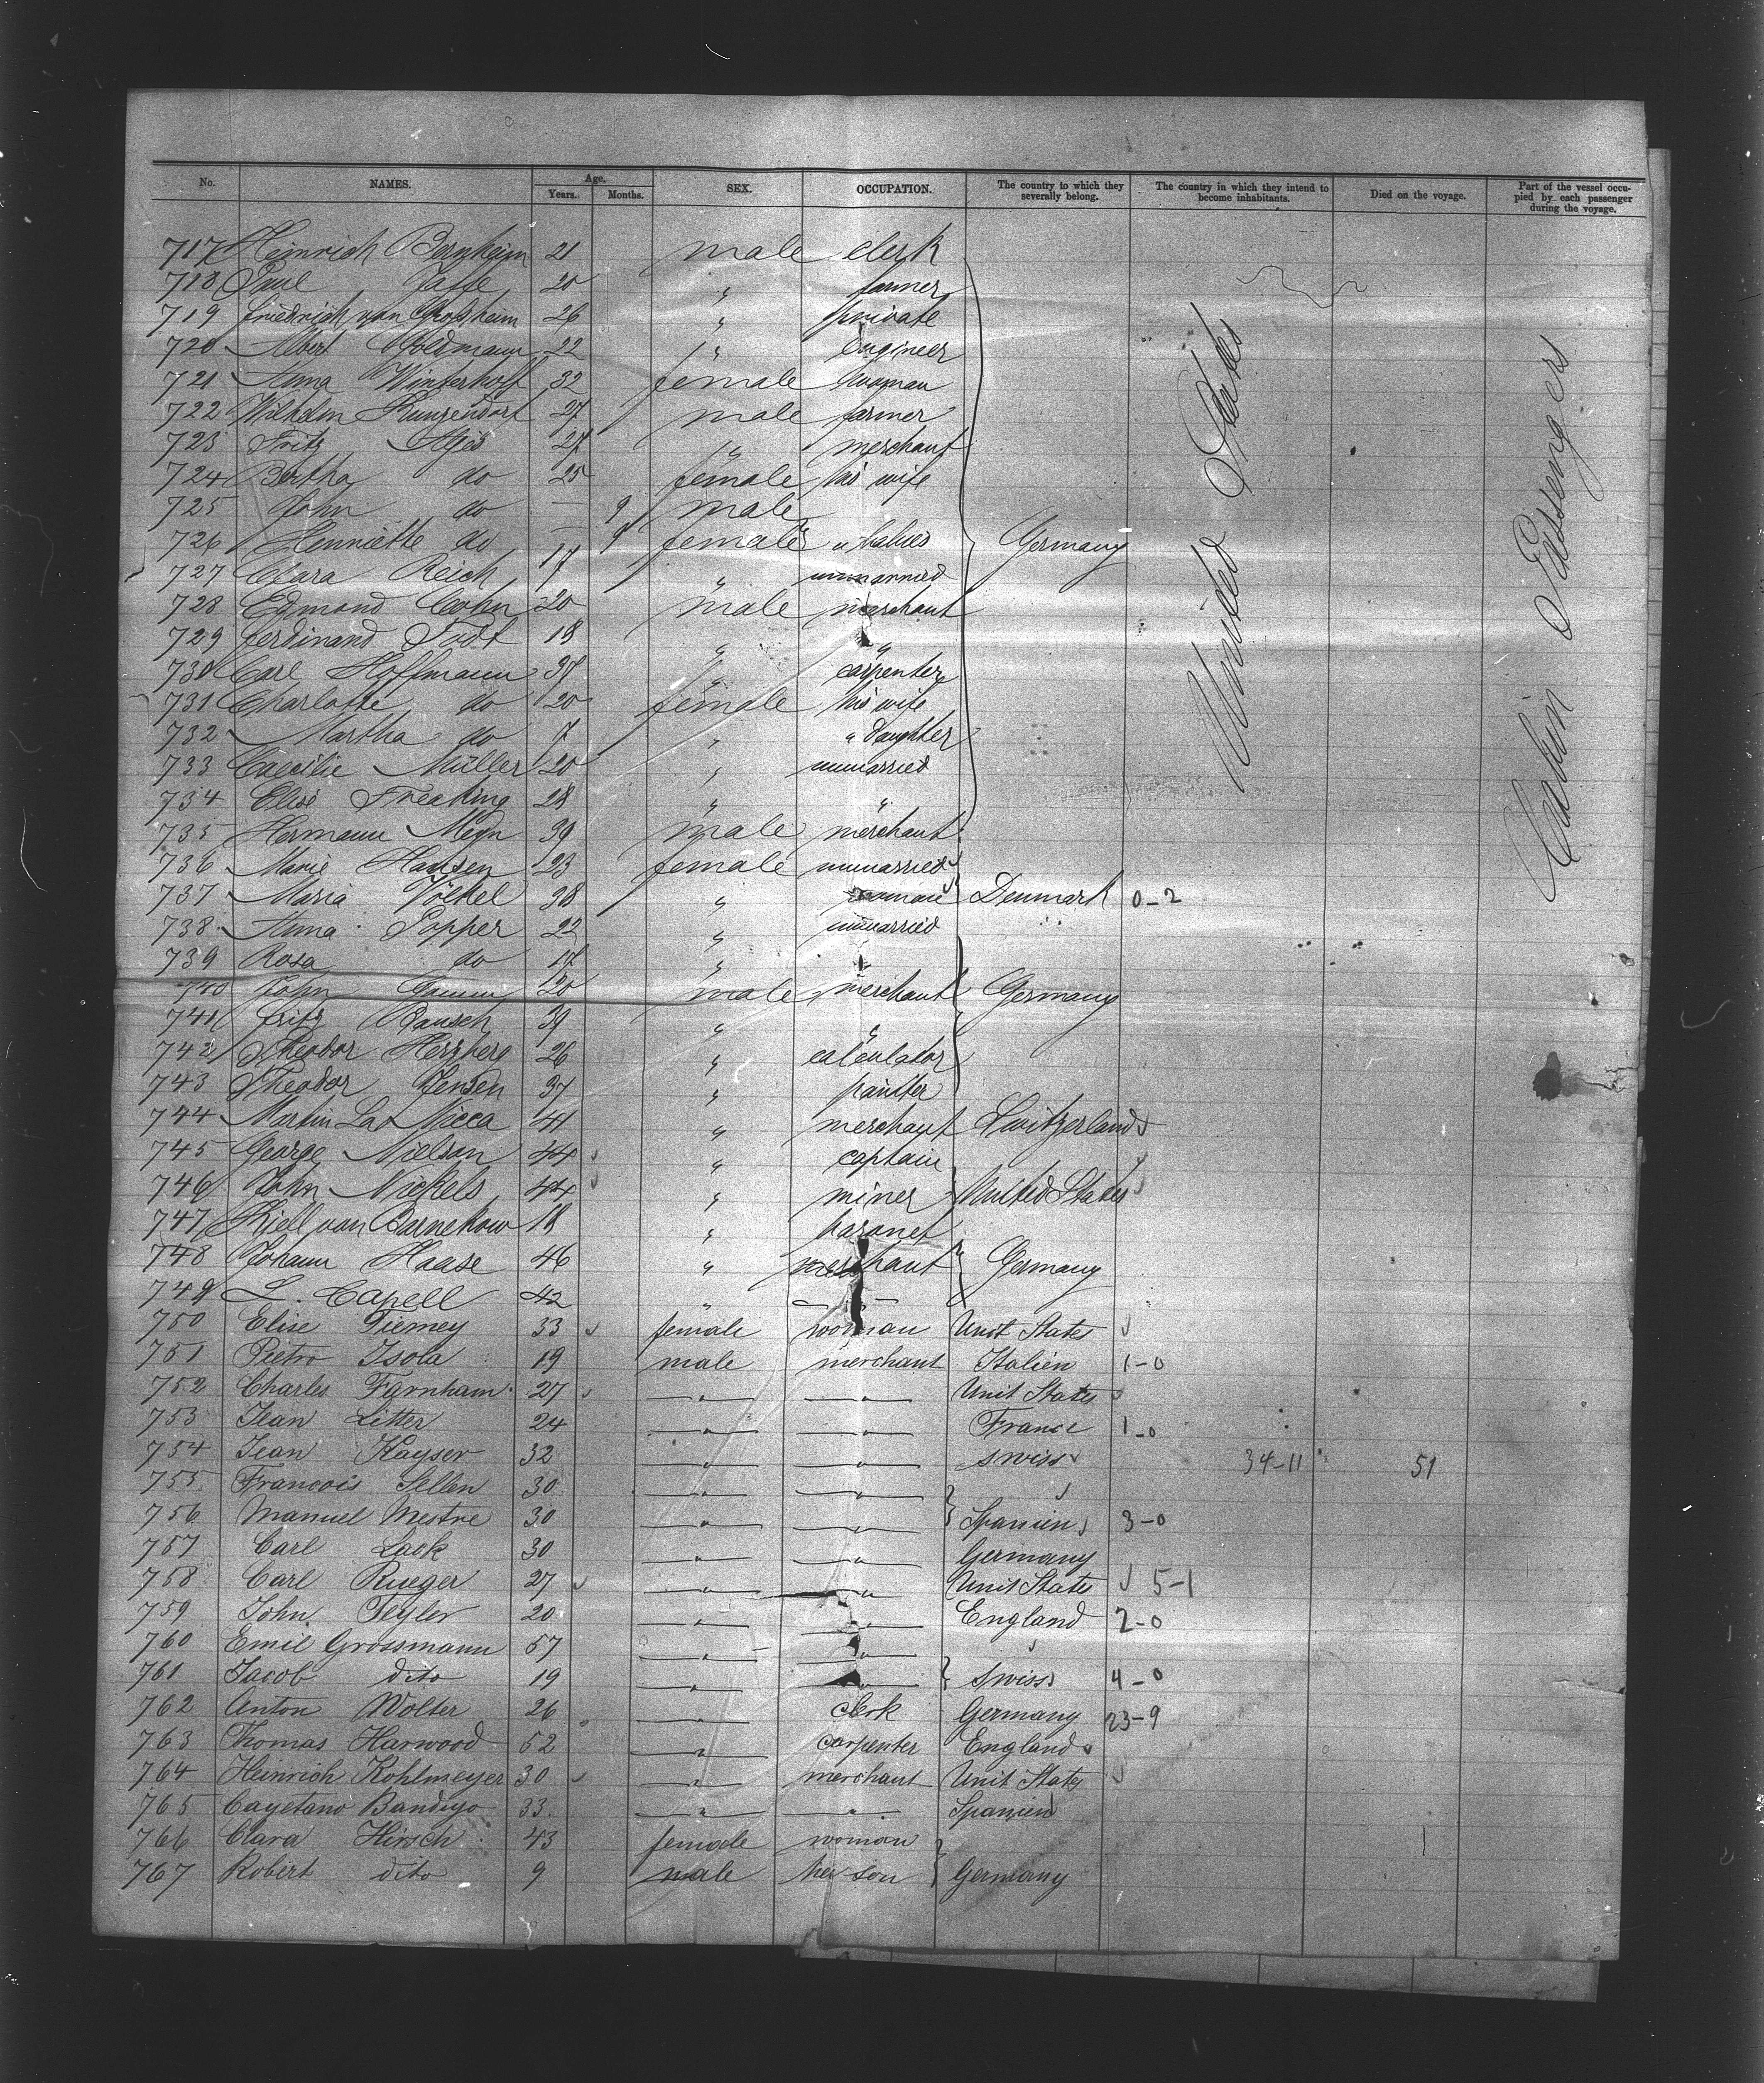 No. NAMES. Age. Years. Months. SEX. OCCUPATION. The country to which they severally belong. The country in which they intend to become inhabitants. Died on the voyage. Part of the vessel occupied by each passenger during the voyage.
717 Heinrich Bernheim 21 male clerk
718 Paul Jaffe 20 " farmer
719 Friedrich von 26 " private
720 Albert Goldmann 22 " Engineer
721 Anna Winterhoff 32 female woman
722 Wilhelm Kunzendorf 27 male farmer
723 Fritz 27 " merchant
724 Bertha do 25 female his wife
725 John do — 9 male
726 Henriette do — 9 female " babies Germany
727 Clara Reich 17 " unmarried
728 Edmond Cohn 20 male merchant
729 Ferdinand Todt 18 " "
730 Carl Hoffmann 37 " carpenter
731 Charlotte do 20 female his wife
732 Martha do 7 " " daughter
733 Caecilie Müller 20 " unmarried
734 Elise Freaking 28 " "
735 Hermann Meyn 39 male merchant
736 Marie Hansen 23 female unmarried
737 Maria Völkel 38 " woman Denmark 0-2
738 Anna Popper 22 " unmarried
739 Rosa do 17 " "
740 John 20 male merchant Germany
741 Fritz Bausch 39 " "
742 Theodor Herzberg 26 " calculator
743 Theodor Jensen 37 " painter
744 Martin La Nicca 41 " merchant Switzerland
745 George Nielson 44 " captain
746 John Nickels 44 " miner United States
747 Kjell von Barnekow 18 " baronet
748 Johann Haase 46 " merchant Germany
749 L. Capell 42 " "
750 Elise Tierney 33 female woman Unit States
751 Pietro Isola 19 male merchant Italien 1-0
752 Charles Farnham 27 " " Unit States
753 Jean Litter 24 " " France 1-0
754 Jean Kayser 32 " " swiss 34-11 51
755 Francois Sellen 30 " "
756 Manuel Mestre 30 " " Spanien 3-0
757 Carl Lack 30 " " Germany
758 Carl Rueger 27 " " Unit States 5-1
759 John Teyler 20 " " England 2-0
760 Emil Grossmann 57 " "
761 Jacob dito 19 " " swiss 4-0
762 Anton Wolter 26 " clerk Germany 23-9
763 Thomas Harwood 52 " carpenter England
764 Heinrich Kohlmeyer 30 " merchant Unit States
765 Cayetano Bandujo 33 " " Spanien
766 Clara Hirsch 43 female woman
767 Robert dito 9 male her son Germany
United States
Cabin Passengers